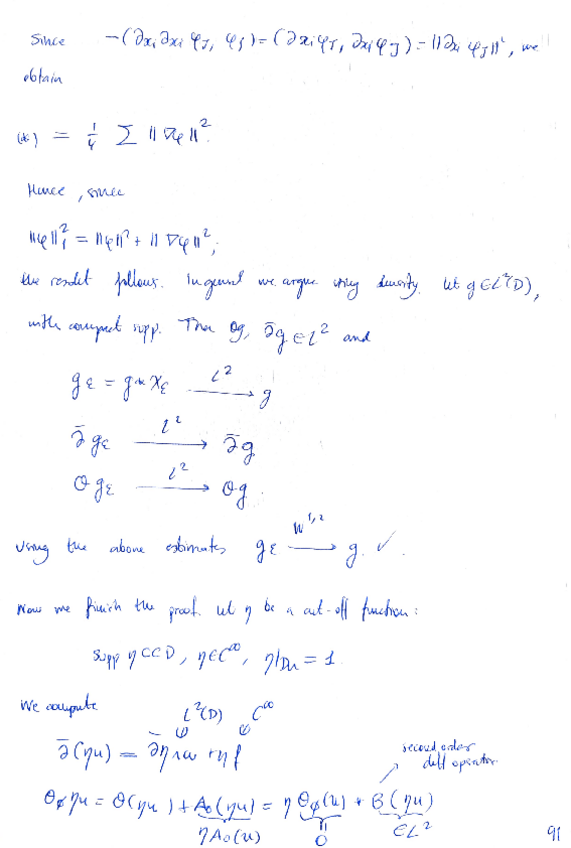 Since −(∂xi ∂xi φJ, φJ) = (∂xi φJ, ∂xi φJ) = ||∂xi φJ||², we
obtain
(*) = 1/4 ∑ ||∇φ||².
Hence, since
||φ||₁² = ||φ||² + ||∇φ||²,
the result follows. In general we argue using density. Let g ∈ L²(D),
with compact supp. Then θg, ∂̄g ∈ L² and
gε = g * χε →(L²) g
∂̄gε →(L²) ∂̄g
θgε →(L²) θg.
Using the above estimates gε →(W^{1,2}) g. ✓.
Now we finish the proof. Let η be a cut-off function:
supp η ⊂⊂ D, η ∈ C^∞, η| = 1.
We compute
L²(D) C^∞
second order
diff operator
∂̄(ηu) = ∂̄η ∧ u + η f
θφ ηu = θ(ηu) + A₀(ηu) = η θφ(u) + B(ηu)
ηA₀(u) 0 ∈ L²
91